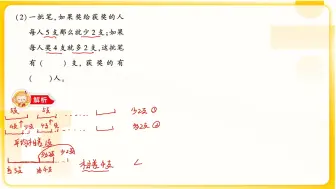 (2)一批笔,如果奖给获奖的人
每人5支那么就少2支;如果
每人奖4支就多2支,这批笔
有( )支,获奖的有
( )人。
解析
5支 5支 少2支 ①
4支 4支 多2支 ②
多2支 少2支
相差4支